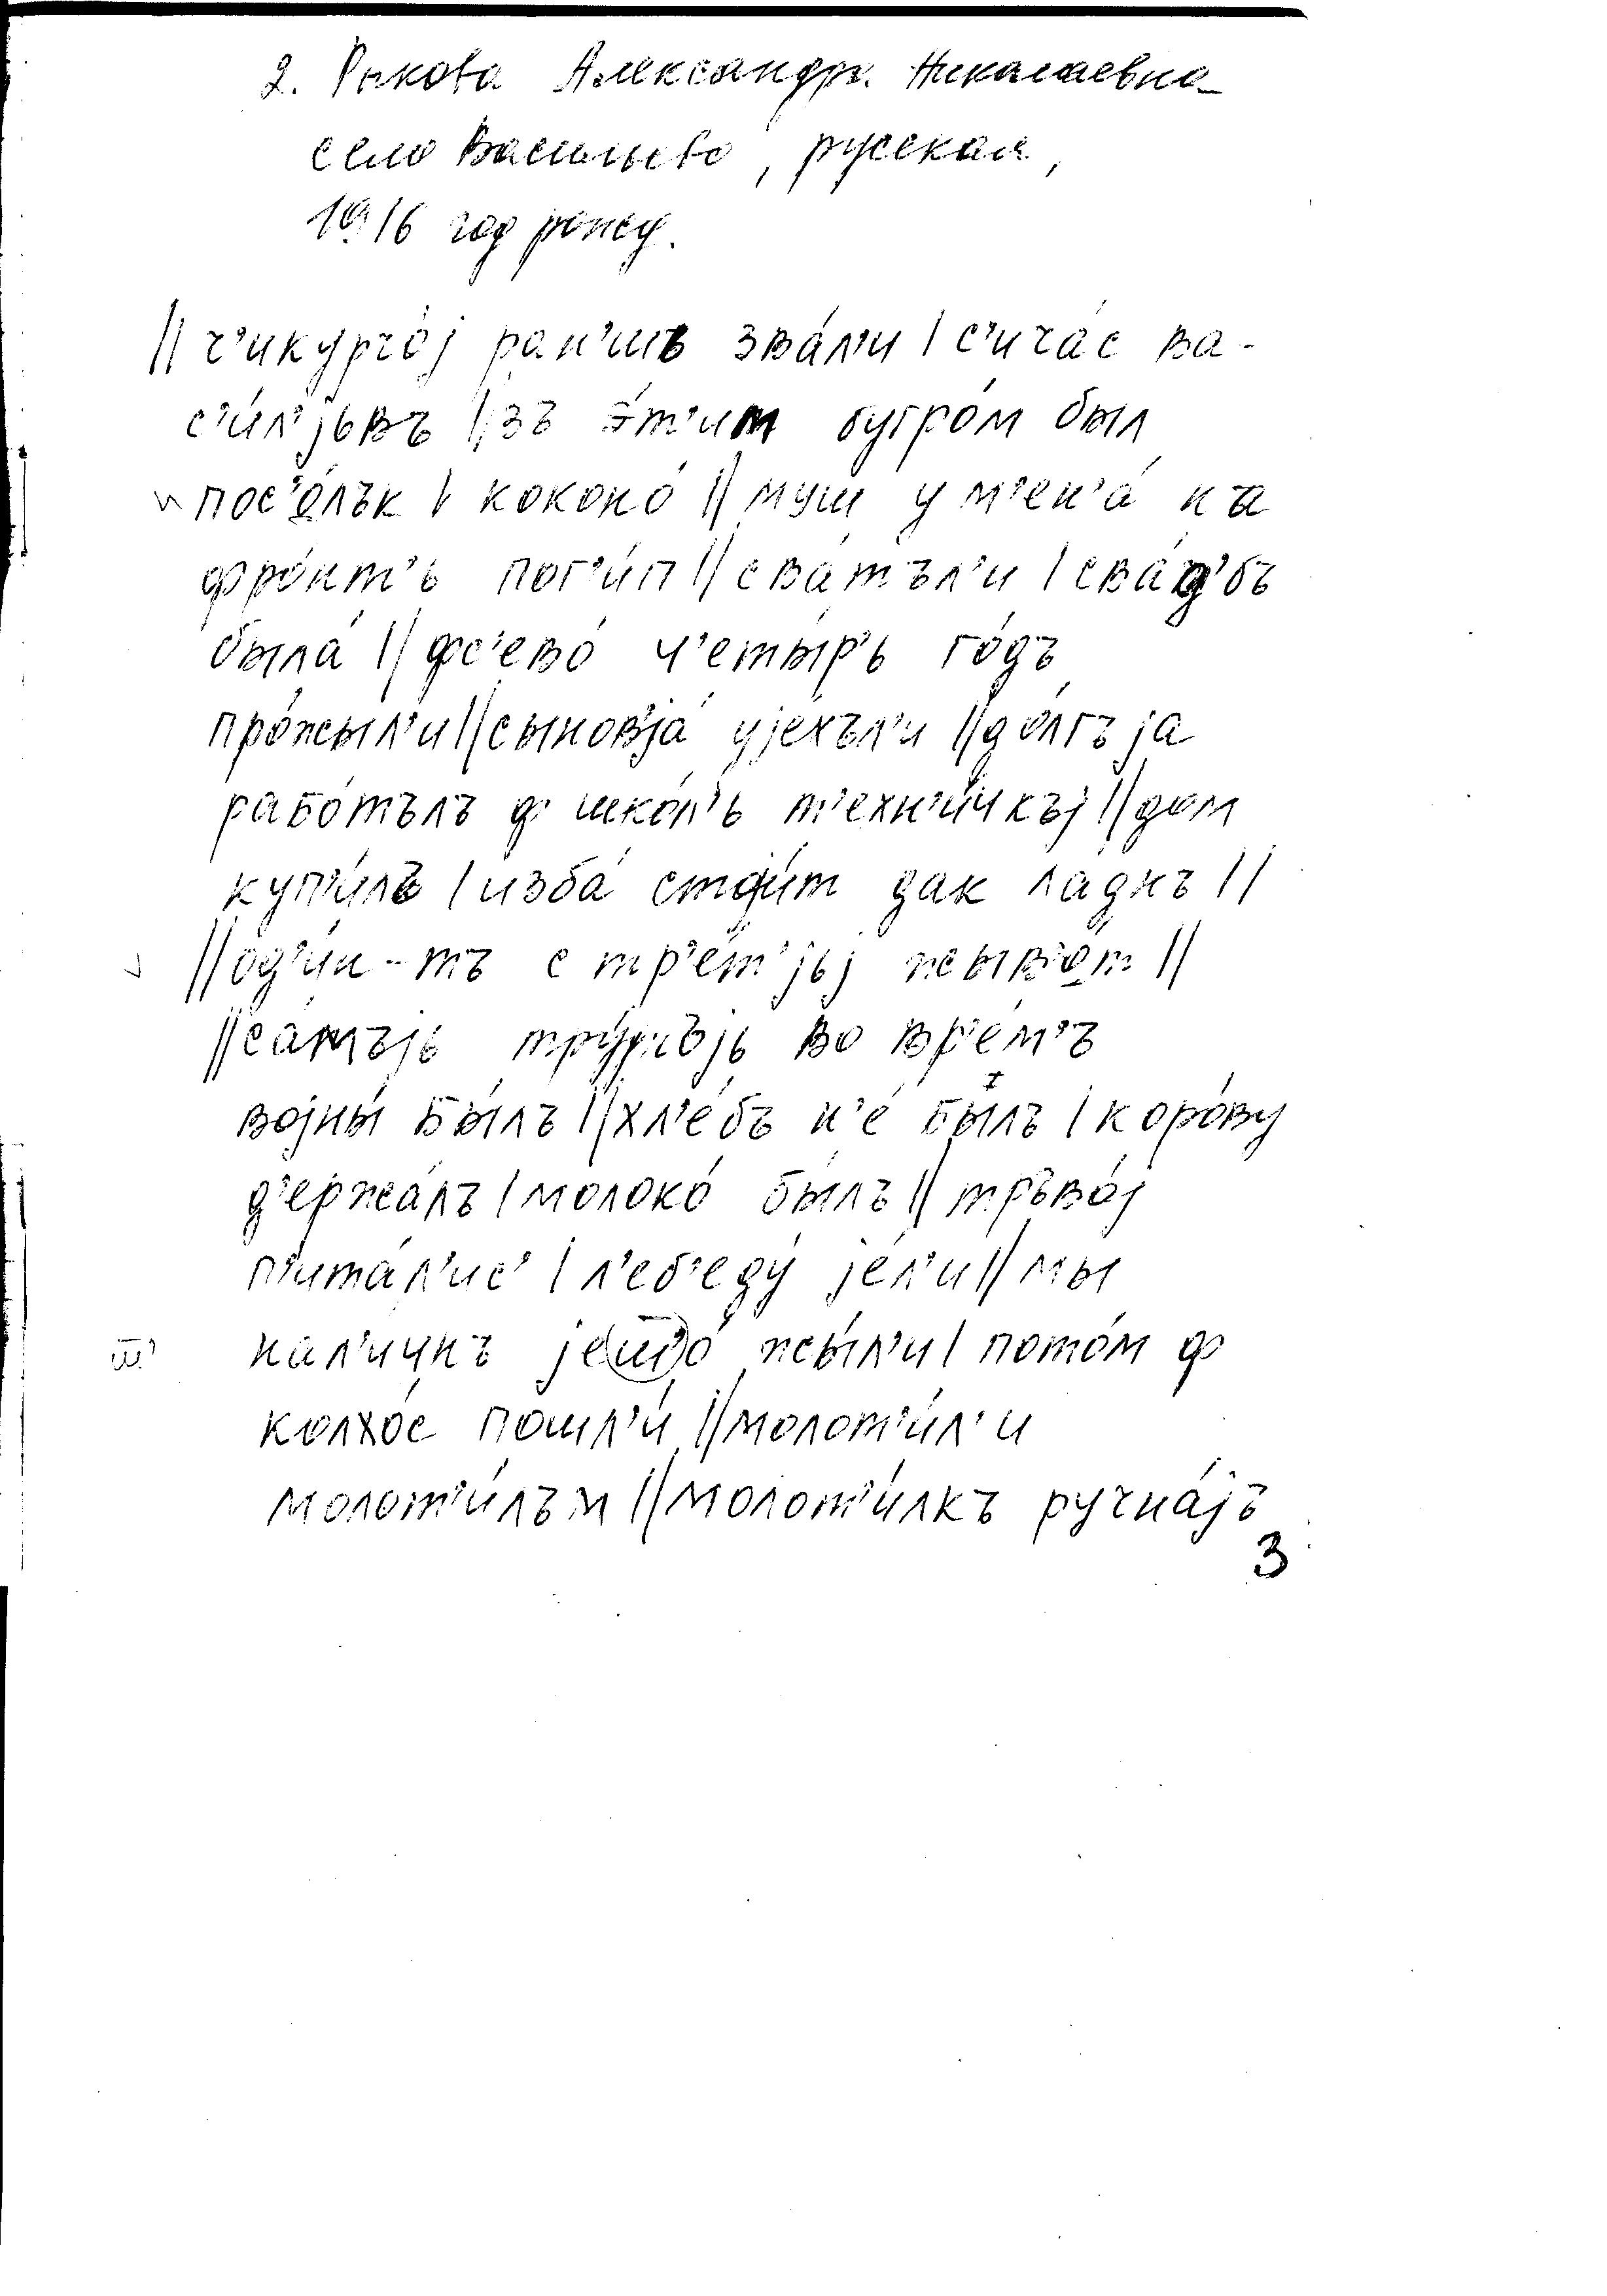 2. Рыкова Александра Николаевна
село Васильево, русская,
1916 год рожд.
|| ч'икурчо́j ра́н'шъ зва́л'и | с'ича́с ва-
с'и́л'jьвъ || зъ э́т'им бугро́м был
пос'о́лък | коконо́ || муш у м'ен'а́ на
фро́нт'ь пог'и́п || сва́тъл'и | сва́д'бъ
была́ || фс'ево́ ч'еты́р'ь го́дъ
про́жыл'и || сыновjа́ уjе́хъл'и || до́лгъ jа
рабо́тълъ ф шко́л'ь т'ехн'и́чкъj || дом
куп'и́лъ | изба́ стоjи́т дак ла́днъ ||
|| од'и́н-тъ с тр'е́т'jьj жыв'о́т ||
|| са́мъjь тру́днъjь во вр'е́м'ъ
воjны́ бы́лъ || хл'е́бъ н'е́ былъ | коро́ву
д'ержа́лъ | молоко́ бы́лъ || тръво́j
п'ита́л'ис' | л'еб'еду́ jе́л'и || мы
нал'ичнъ jешо́ жы́л'и | пото́м ф
колхо́с пошл'и́ || молот'и́л'и
молот'и́лъм || молот'и́лкъ ручна́jъ
3